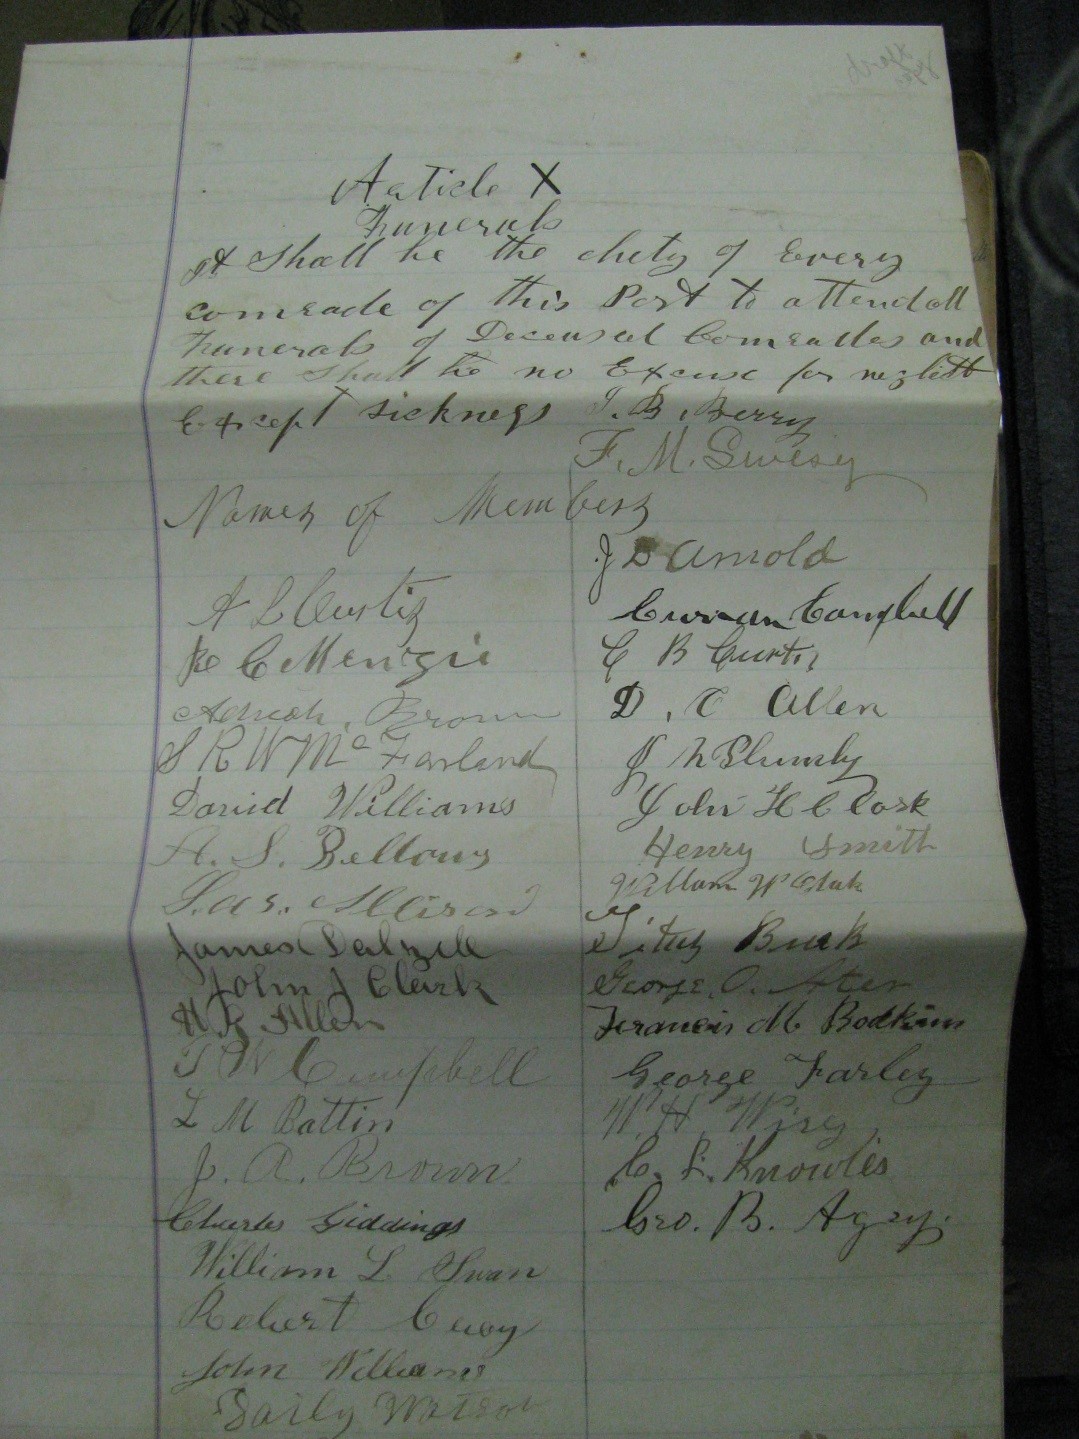 Article X
Funerals
It Shall be the duty of Every
comrade of this Post to attend all
Funerals of Deceased Comrades and
there Shall be no Excuse for neglett
Except sickness
T. B. Berry
F. M. Swesy
Names of Members
A L Curtis
C Menzie
Brown
S R W Mc Farland
David Williams
A. S. Bellows
Jas. Allison
James Dalzell
John J Clark
H R Allen
T W Campbell
L M Battin
J. A. Brown
Charles Giddings
William L Swan
Robert
John Williams
Baily Watson
J D Arnold
Curran Campbell
C B Curtis
D. C Allen
J N Plumly
John H Clark
Henry Smith
William W Clark
Titus Buck
George O. Ater
Francis M Bodkins
George Farley
W. H. Wisey
C. L. Knowles
Geo. B. Agey.